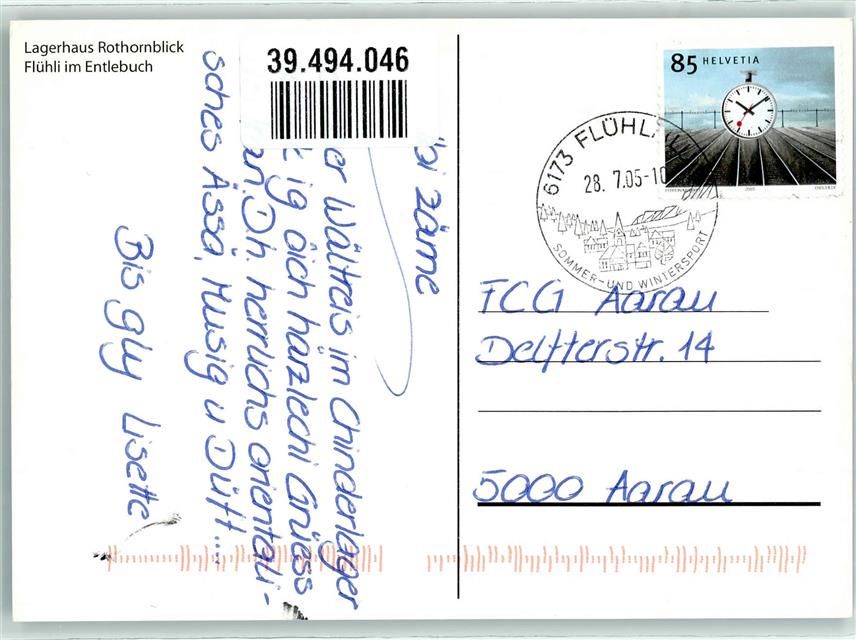 Lagerhaus Rothornblick
Flühli im Entlebuch
39.494.046
85 HELVETIA
6173 FLÜHL
28. 7.05-10
SOMMER- UND WINTERSPORT
zäme
er Wältreis im Chinderlager
ig öich härzlechi Grüess
Dh. herrlichs orientali-
sches Ässä, Musig u Düft....
Bis gly Lisette
FCG Aarau
Delfterstr. 14
5000 Aarau